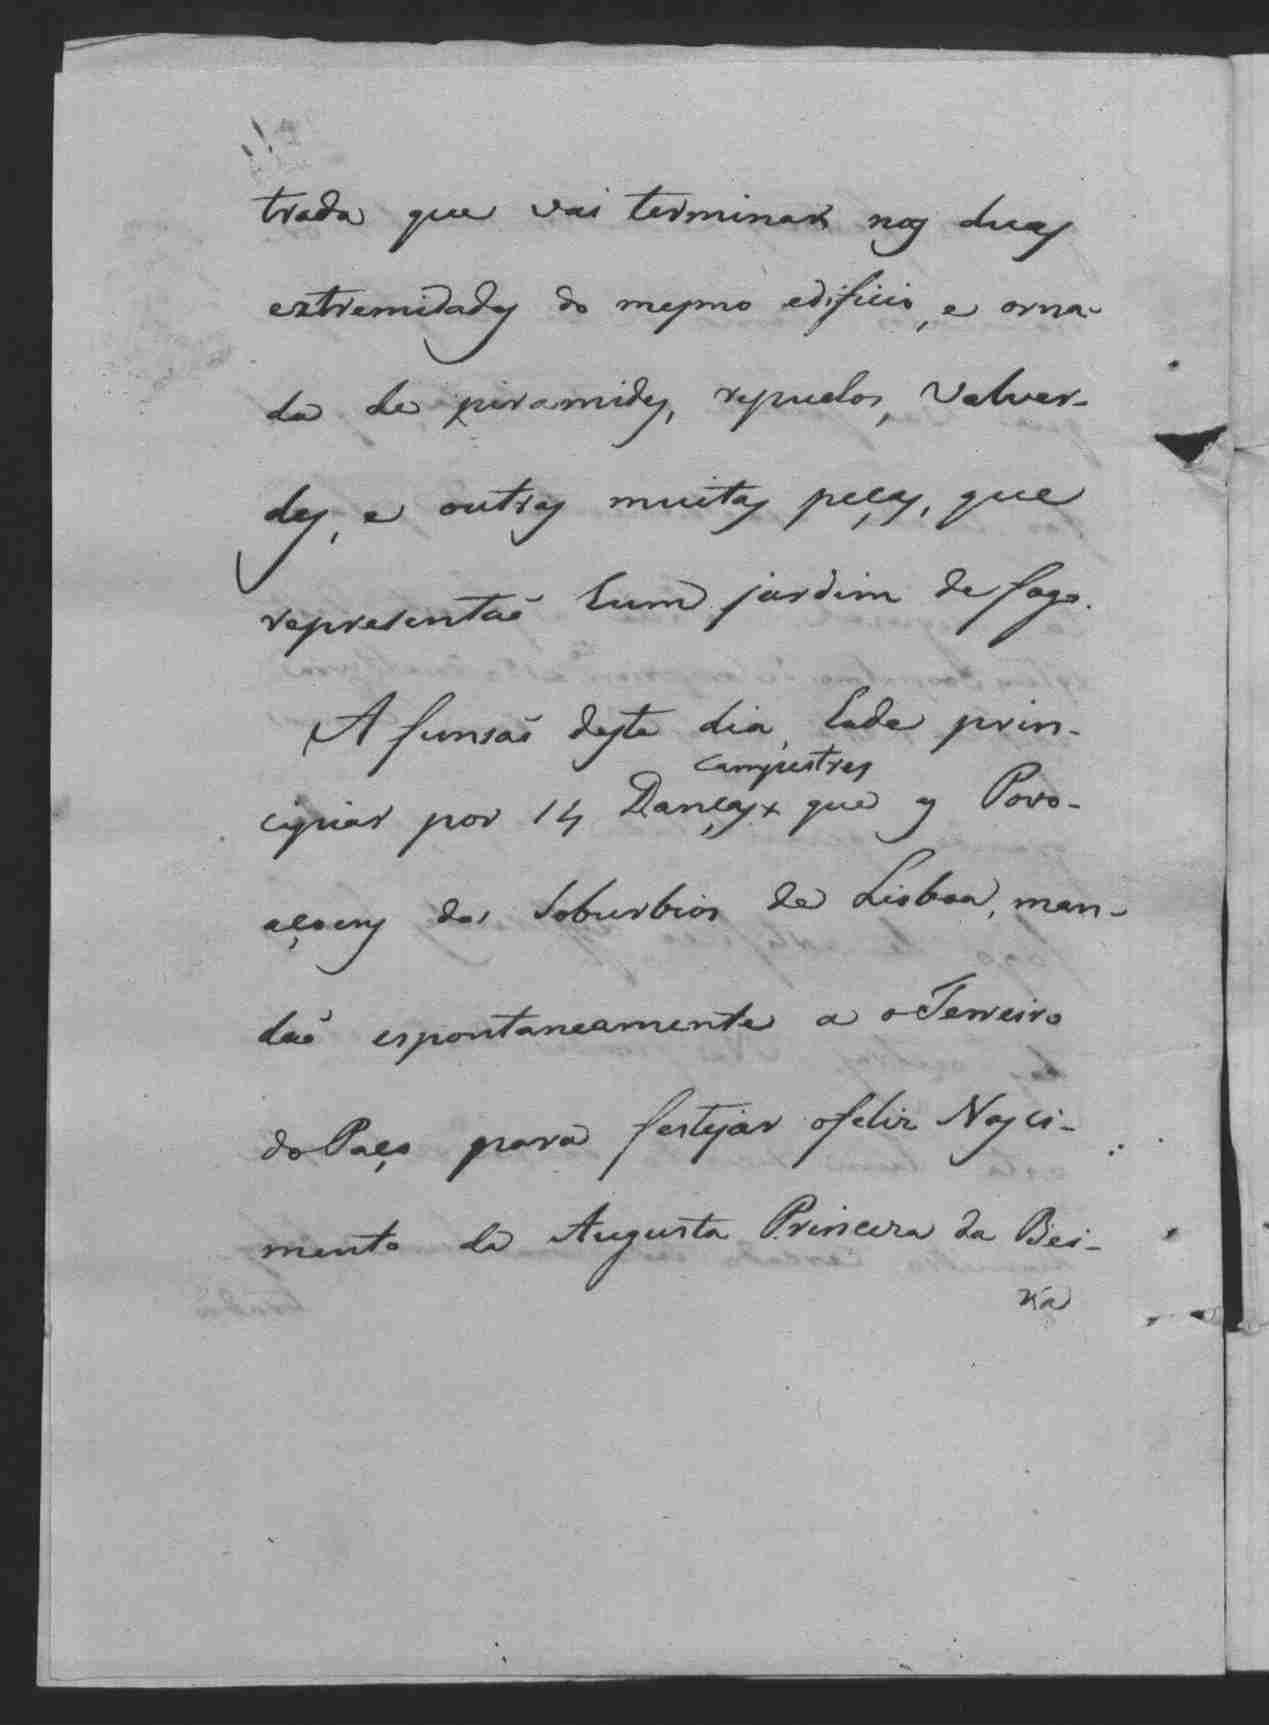 trada que vai terminar nas duas
extremidades do mesmo edificio, e orna-
da de piramides, repuxos, Valver-
des, e outras muitas peças, que
representaõ hum jardim de fogo.
A funsaõ deste dia, hade prin-
campestres
cipiar por 14 Danças x que as Povo-
açoens dos Soburbios de Lisboa, man-
daõ espontaneamente a o Terreiro
do Paço para festejar o feliz Nasci-
mento da Augusta Princeza da Bei-
ra